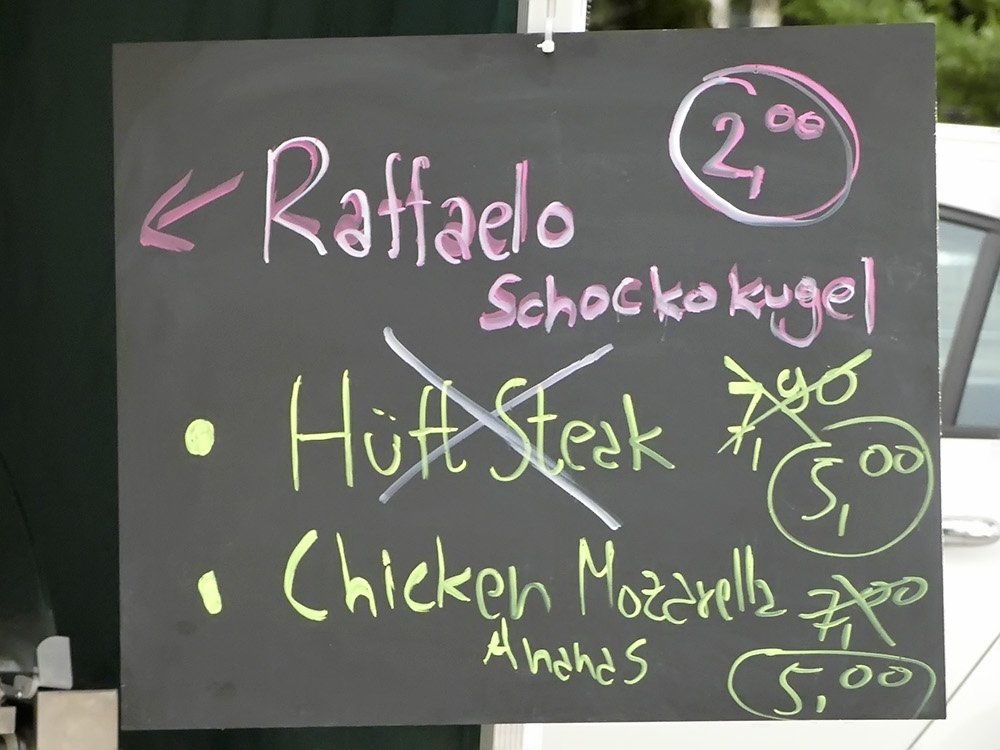 2,00
Raffaelo
Schockokugel
Hüft Steak 7,90
5,00
Chicken Mozzarella 7,00
Ananas 5,00